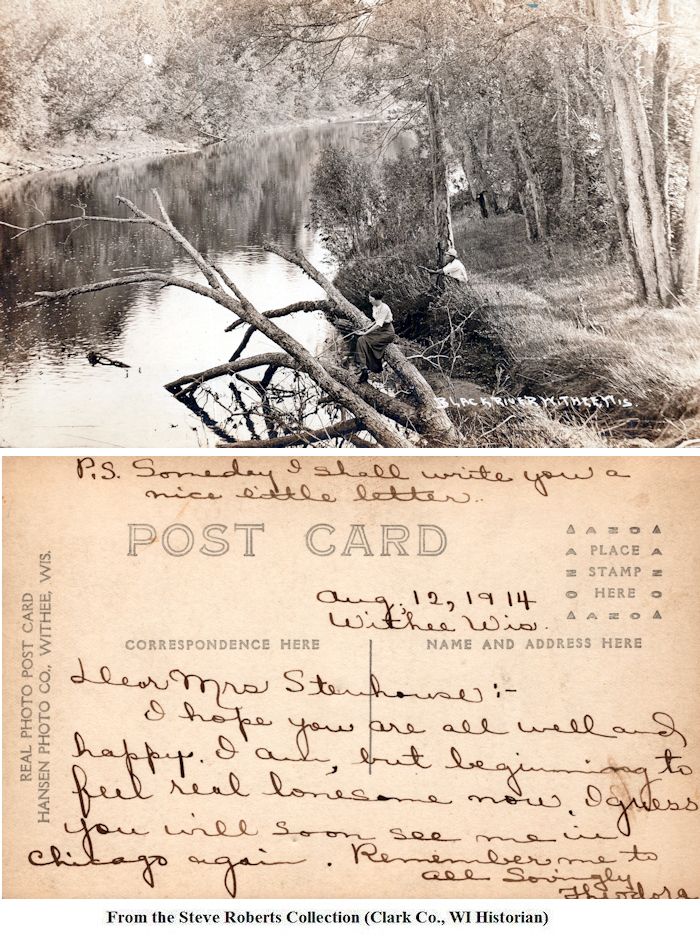 BLACK RIVER WITHEE, WIS.
P.S. Someday I shall write you a
nice little letter..
POST CARD
AZO
PLACE
STAMP
HERE
AZO
Aug, 12, 1914
Withee Wis.
CORRESPONDENCE HERE
NAME AND ADDRESS HERE
REAL PHOTO POST CARD
HANSEN PHOTO CO., WITHEE, WIS.
Dear Mrs Stenhouse:-
I hope you are all well and
happy. I am, but beginning to
feel real lonesome now. I guess
you will soon see me in
Chicago again. Remember me to
all Lovingly
Theodora
From the Steve Roberts Collection (Clark Co., WI Historian)